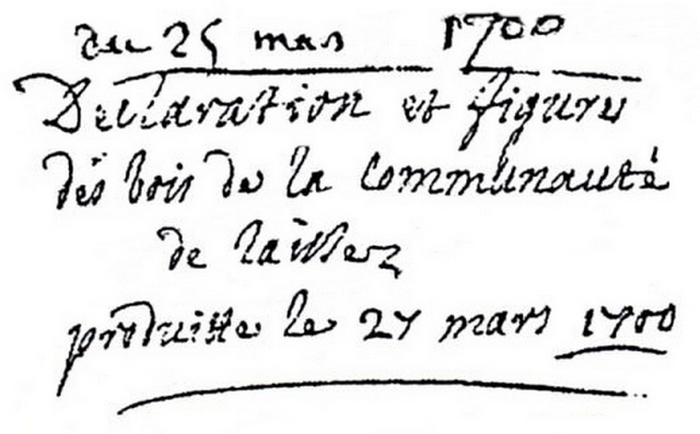 du 25 mars 1700
Declaration et figures
des bois de la Communauté
de laissez
produitte le 27 mars 1700